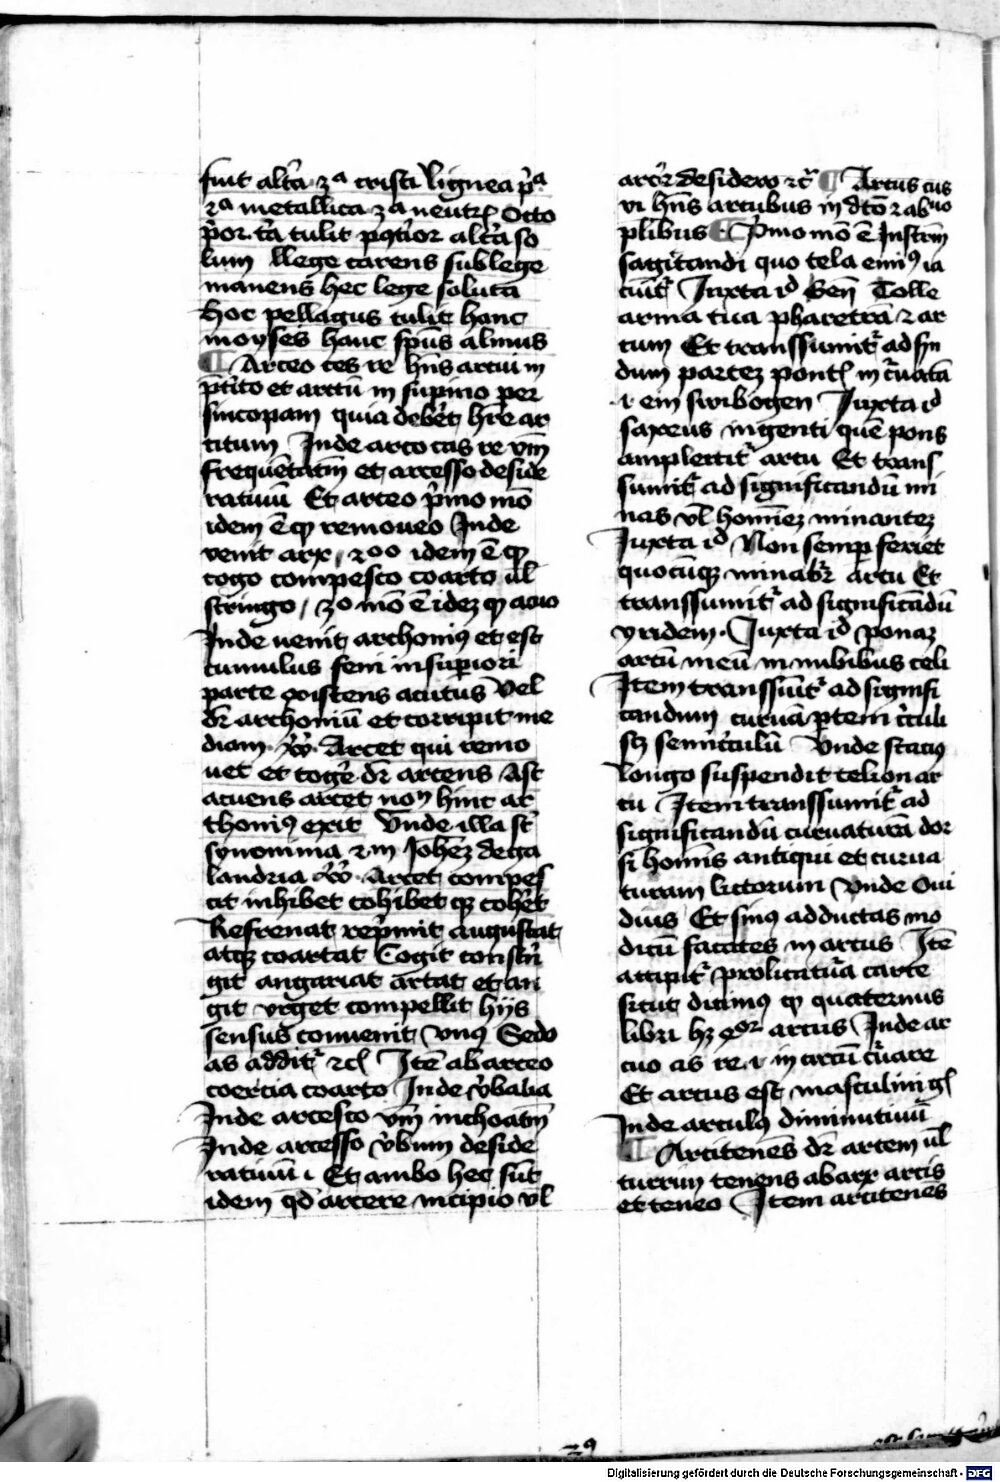 fuit alt̃a · 3ª cristi lignea p̃ª
2ª metallica 3ª neutr̃ Octo
p̃or t̃a tulit pq̃tior alt̃a so
lum llege carens sub lege
manens hec lege soluta
Hoc pellagus tulit hanc
moyses hanc sp̃us almus
¶ Arceo ces re h̃ns artui in
p̃tito et arctũ in supino per
sincopam quia deberet h̃re ar
citum Inde arco cas re vm̃
frequẽtatiũ et arcesso deside
ratiuũ Et arceo p̃imo mõ
idem ẽ qꝫ remoueo Inde
venit arx, 2oº idem ẽ qꝫ
cogo compesco coarto ũl
stringo, 3o mõ ẽ idez qꝫ acuo
Inde uenit archoniꝰ et est
cumulus feni in superiori
parte existens acutus Vel
dr̃ archoniũ et corripit me
diam. Arcet qui remo
uet et coge dr̃ arcens Ast
acuens arcet non hinc ar
choniꝰ exit Vnde illa st̃
synonima 2 in Joh̃ez de ga
landria Arcet compes
cit inhibet cohibet qꝫ coh̃et
Refrenat rep̃mit angustat
atqꝫ coartat Cogit constri̇̃
git angariat artat et an
git vrget compellit hijs
sensus conuenit vnꝰ Sedo
as additr̃ 2c̃ Itẽ ab arceo
coercia coarto Inde v̓balia
Inde arcesco vm̃ inchoatiũ
Inde arcesso v̓bum deside
ratiuũ i Et ambo hec sũt
idem qd̓ arcere incipio vl̓
arcere desidero 2c̃ ¶ Arcus cus
vi h̃ns arcubus in dt̃o 2 abᵘᵒ
plibus ¶ P̓mo mõ ẽ Instrm̃
sagitandi quo tela emiꝰ ia
ciuit̃ Juxta id Gen̄ Tolle
arma tua pharetra 2 ar
cum Et transsumit̃ ad sin
dum partez pont̃ in c̃uata
·i· ein swibogen Juxta id
saxeus ingenti quẽ pons
amplectit̃ arcu Et trans
sumit̃ ad significandũ mi
nas vl̓ hom̃iez minantez
Juxta id Non semp feriet
quocũqꝫ minabr̃ arcu Et
transsumit̃ ad significãdũ
yridem. Juxta id ponaz
arcũ meũ in nubibus celi
Item transsũit̃ ad signifi
candum curuã p̱tem c̓culi
sꝫ semic̓culũ Vnde staciꝰ
longo suspendit celion ar
cu Item transsumit̃ ad
significandũ curuaturã dor
si homis antiqui et curua
turam lictorum Vnde Oui
dius Et sinꝰ adductas mo
dicũ facites in arcus Itẽ
accipit̃ p̱ plicatura carte
sicut dicimꝰ qꝫ quaternus
libri hꝫ qºr arcus Inde ar
cuo as re. i in arcũ c̃uare
Et arcus est masculini g̃
Inde arculꝰ diminutiuũ
¶ Arcitenens dr̃ arcem ũl
turrim tenens ab arx arcis
et teneo Item arcitenes
39
Digitalisierung gefördert durch die Deutsche Forschungsgemeinschaft - DFG